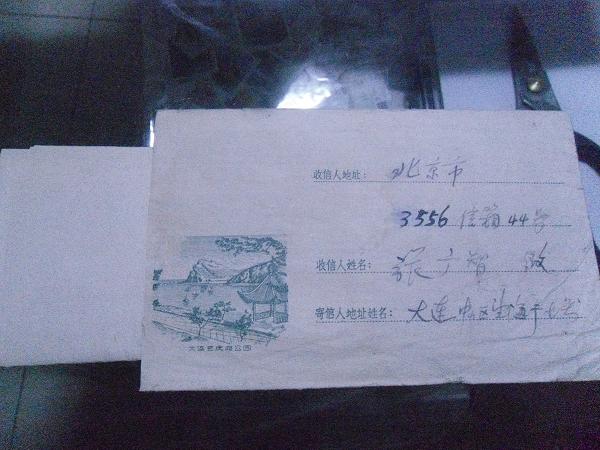 收信人地址： 北京市
3556 信箱 44号
收信人姓名： 张广智 收
寄信人地址姓名： 大连
大连老虎滩公园